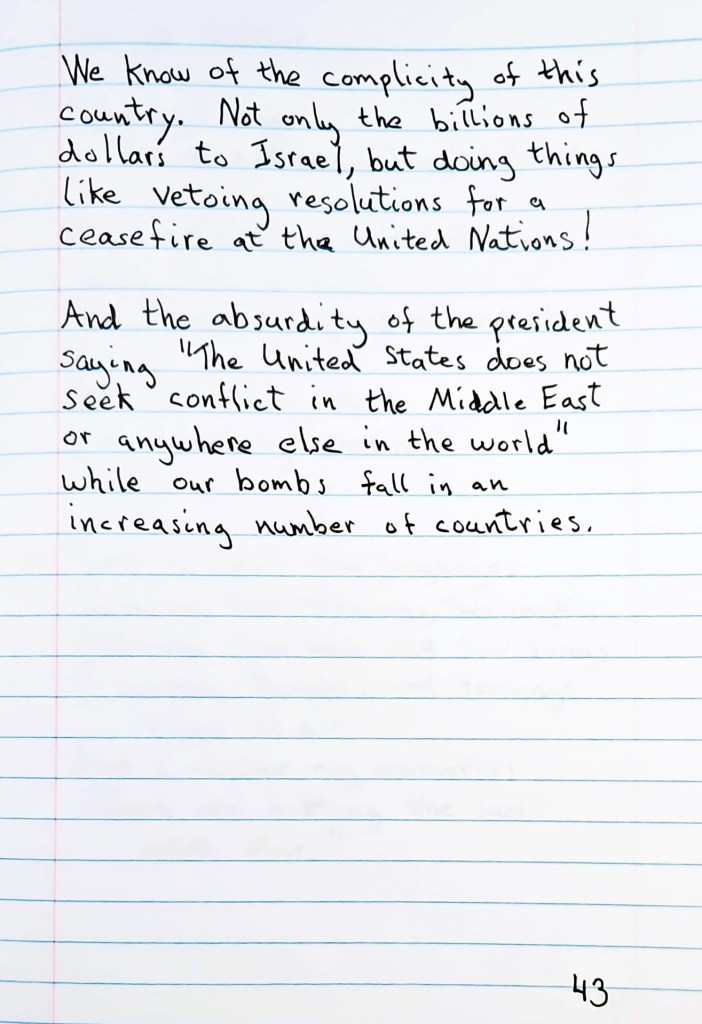 We know of the complicity of this
country. Not only the billions of
dollars to Israel, but doing things
like vetoing resolutions for a
ceasefire at the United Nations!
And the absurdity of the president
saying "The United States does not
seek conflict in the Middle East
or anywhere else in the world"
while our bombs fall in an
increasing number of countries.
43